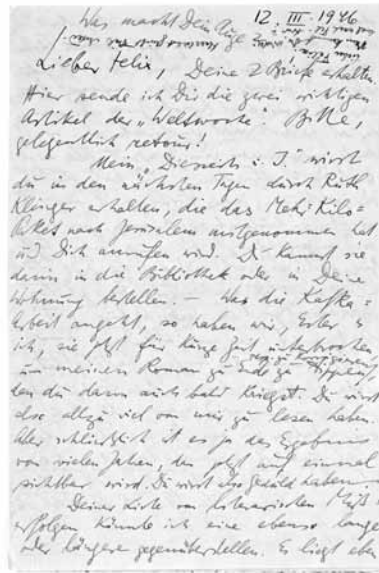 Was macht Dein Auge?
12. III. 1946
Lieber Felix, Deine 2 Briefe erhalten.
Hier sende ich Dir die zwei wichtigen
Artikel der „Weltwoche". Bitte,
gelegentlich retour!
Mein „Diesseits u. J." wirst
du in den nächsten Tagen durch Ruth
Klinger erhalten, die das Mehr-Kilo=
Paket nach Jerusalem mitgenommen hat
und Dich anrufen wird. Du kannst sie
dann in die Bibliothek oder in Deine
Wohnung bestellen. – Was die Kafka=
Arbeit angeht, so haben wir, Ester u
ich, sie jetzt für kurze Zeit unterbrochen,
um meinen Roman zu Ende zu tippen,
resp. zu korrigieren
den du dann auch bald kriegst. Du wirst
also allzu viel von mir zu lesen haben.
Aber schließlich ist es ja das Ergebnis
von vielen Jahren, das jetzt auf einmal
sichtbar wird. Du wirst also Geduld haben.
Deiner Liste von literarischen Miß=
erfolgen könnte ich eine ebenso lange
oder längere gegenüberstellen. Es liegt eben